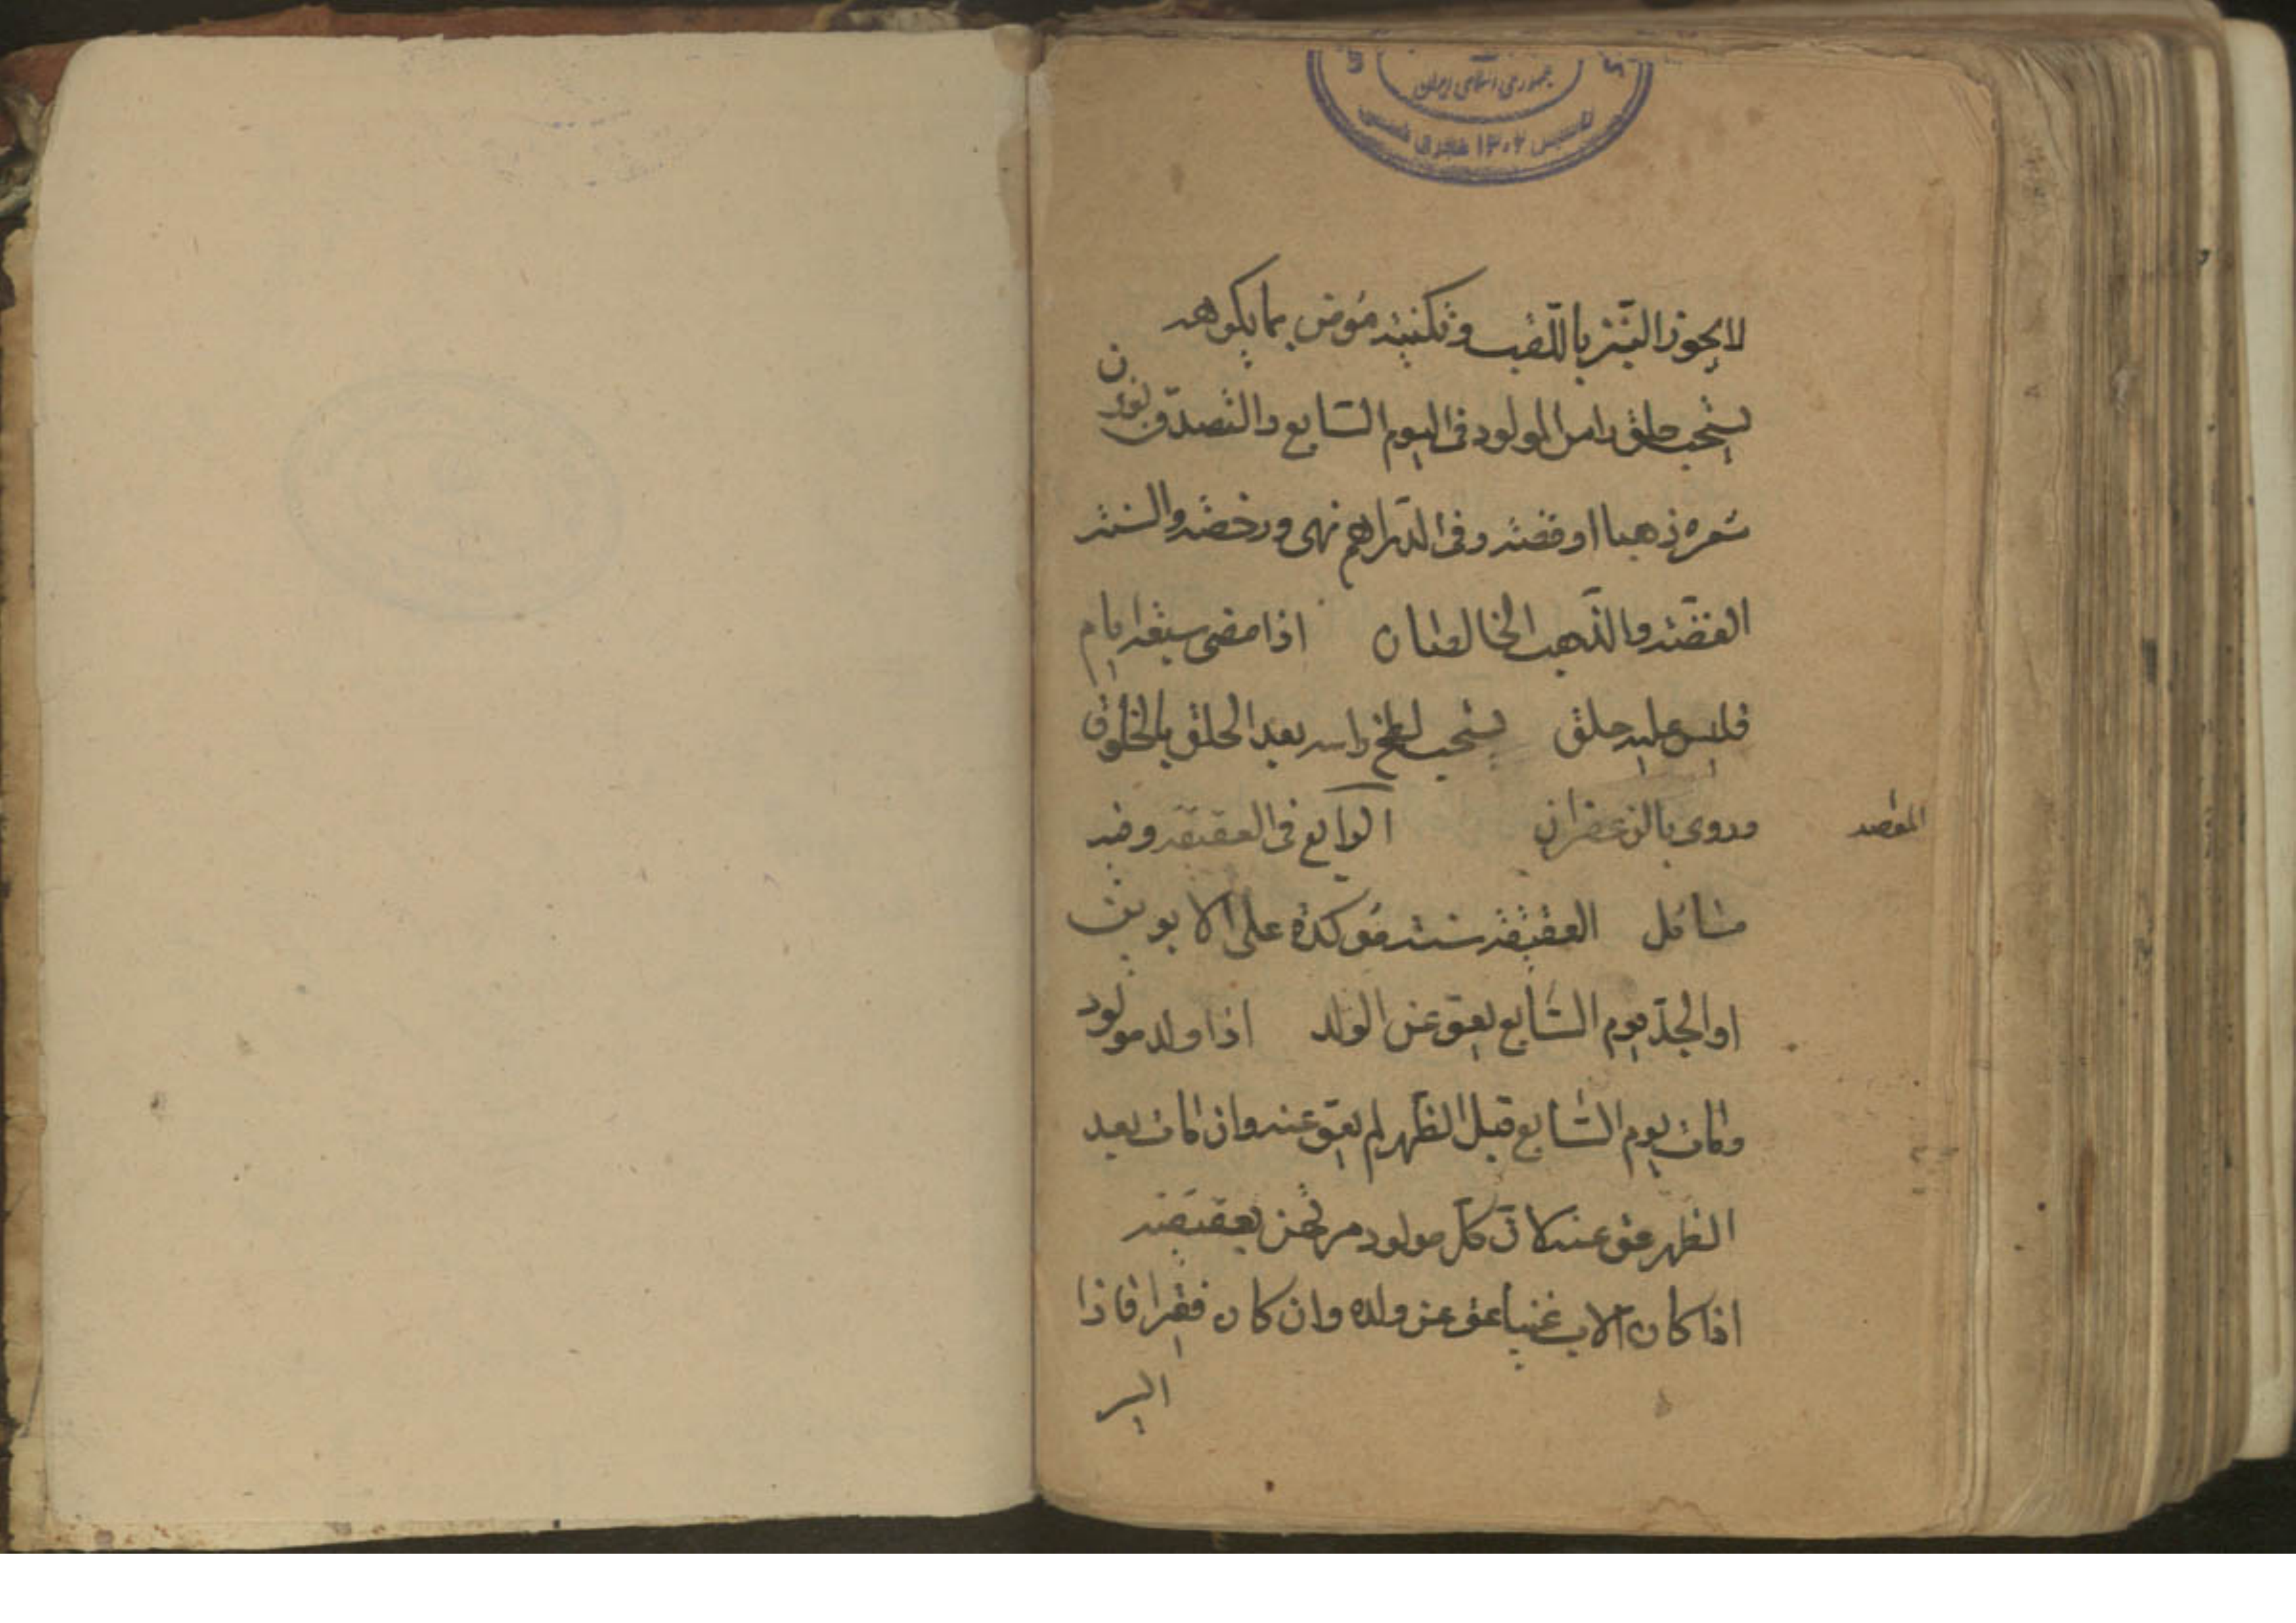 جمهوری اسلامی ایران
تاسیس ۱۳۰۲ هجری شمسی
لا يجوز النبز باللقب وتكنية مؤمن بما يكرهه
يستحب حلق راس المولود فى اليوم السابع والتصدق بوزن
شعره ذهبا او فضة وفى الدراهم نهى ورخصة والسنة
الفضة والذهب الخالصان اذا مضى سبعة ايام
فليس عليه حلق يستحب لطخ راسه بعد الحلق بالخلوق
وروى بالزعفران الرابع فى العقيقة وفيه
المقصد
مسائل العقيقة سنة مؤكدة على الابوين
او الجد يوم السابع يعق عن الولد اذا ولد مولود
وكان يوم السابع قبل الظهر لم يعق عنه وان كان بعد
الظهر عق عنه لان كل مولود مرتهن بعقيقته
اذا كان الاب غنيا عق عن ولده وان كان فقيرا فاذا